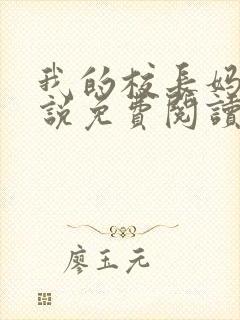 我的校長媽
說免費閱讀
廖玉元